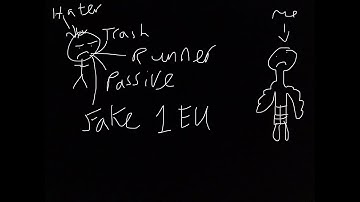 Hater
me
Trash
Runner
Passive
Fake 1 EU